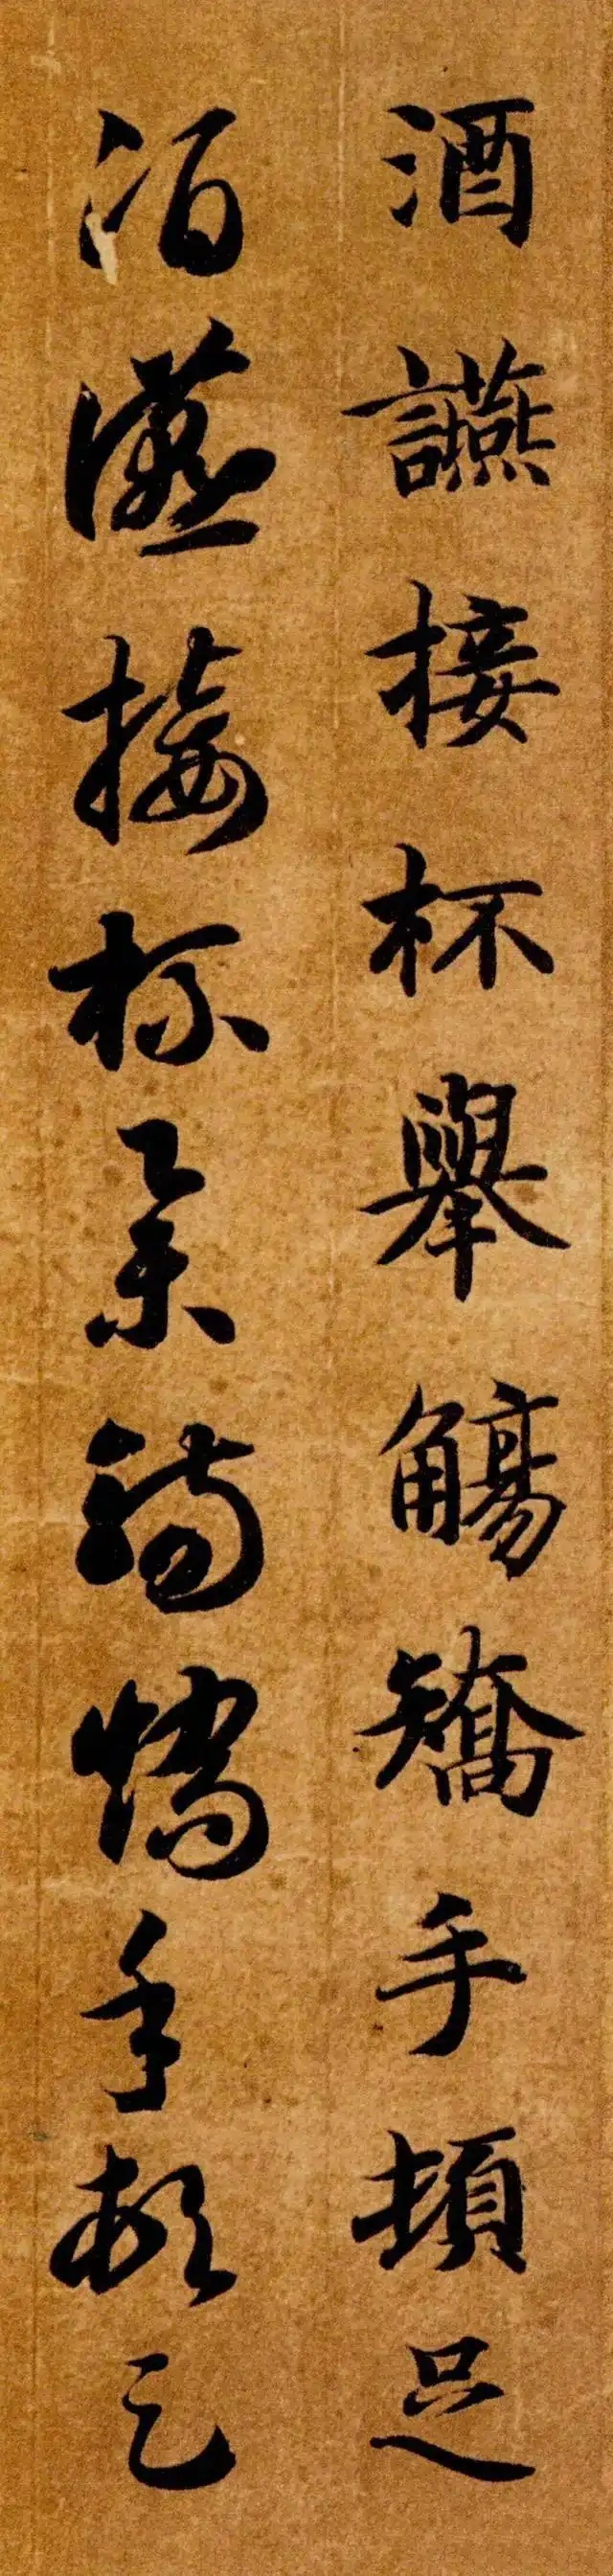 酒讌接杯舉觴矯手頓足
酒讌接杯舉觴矯手頓足